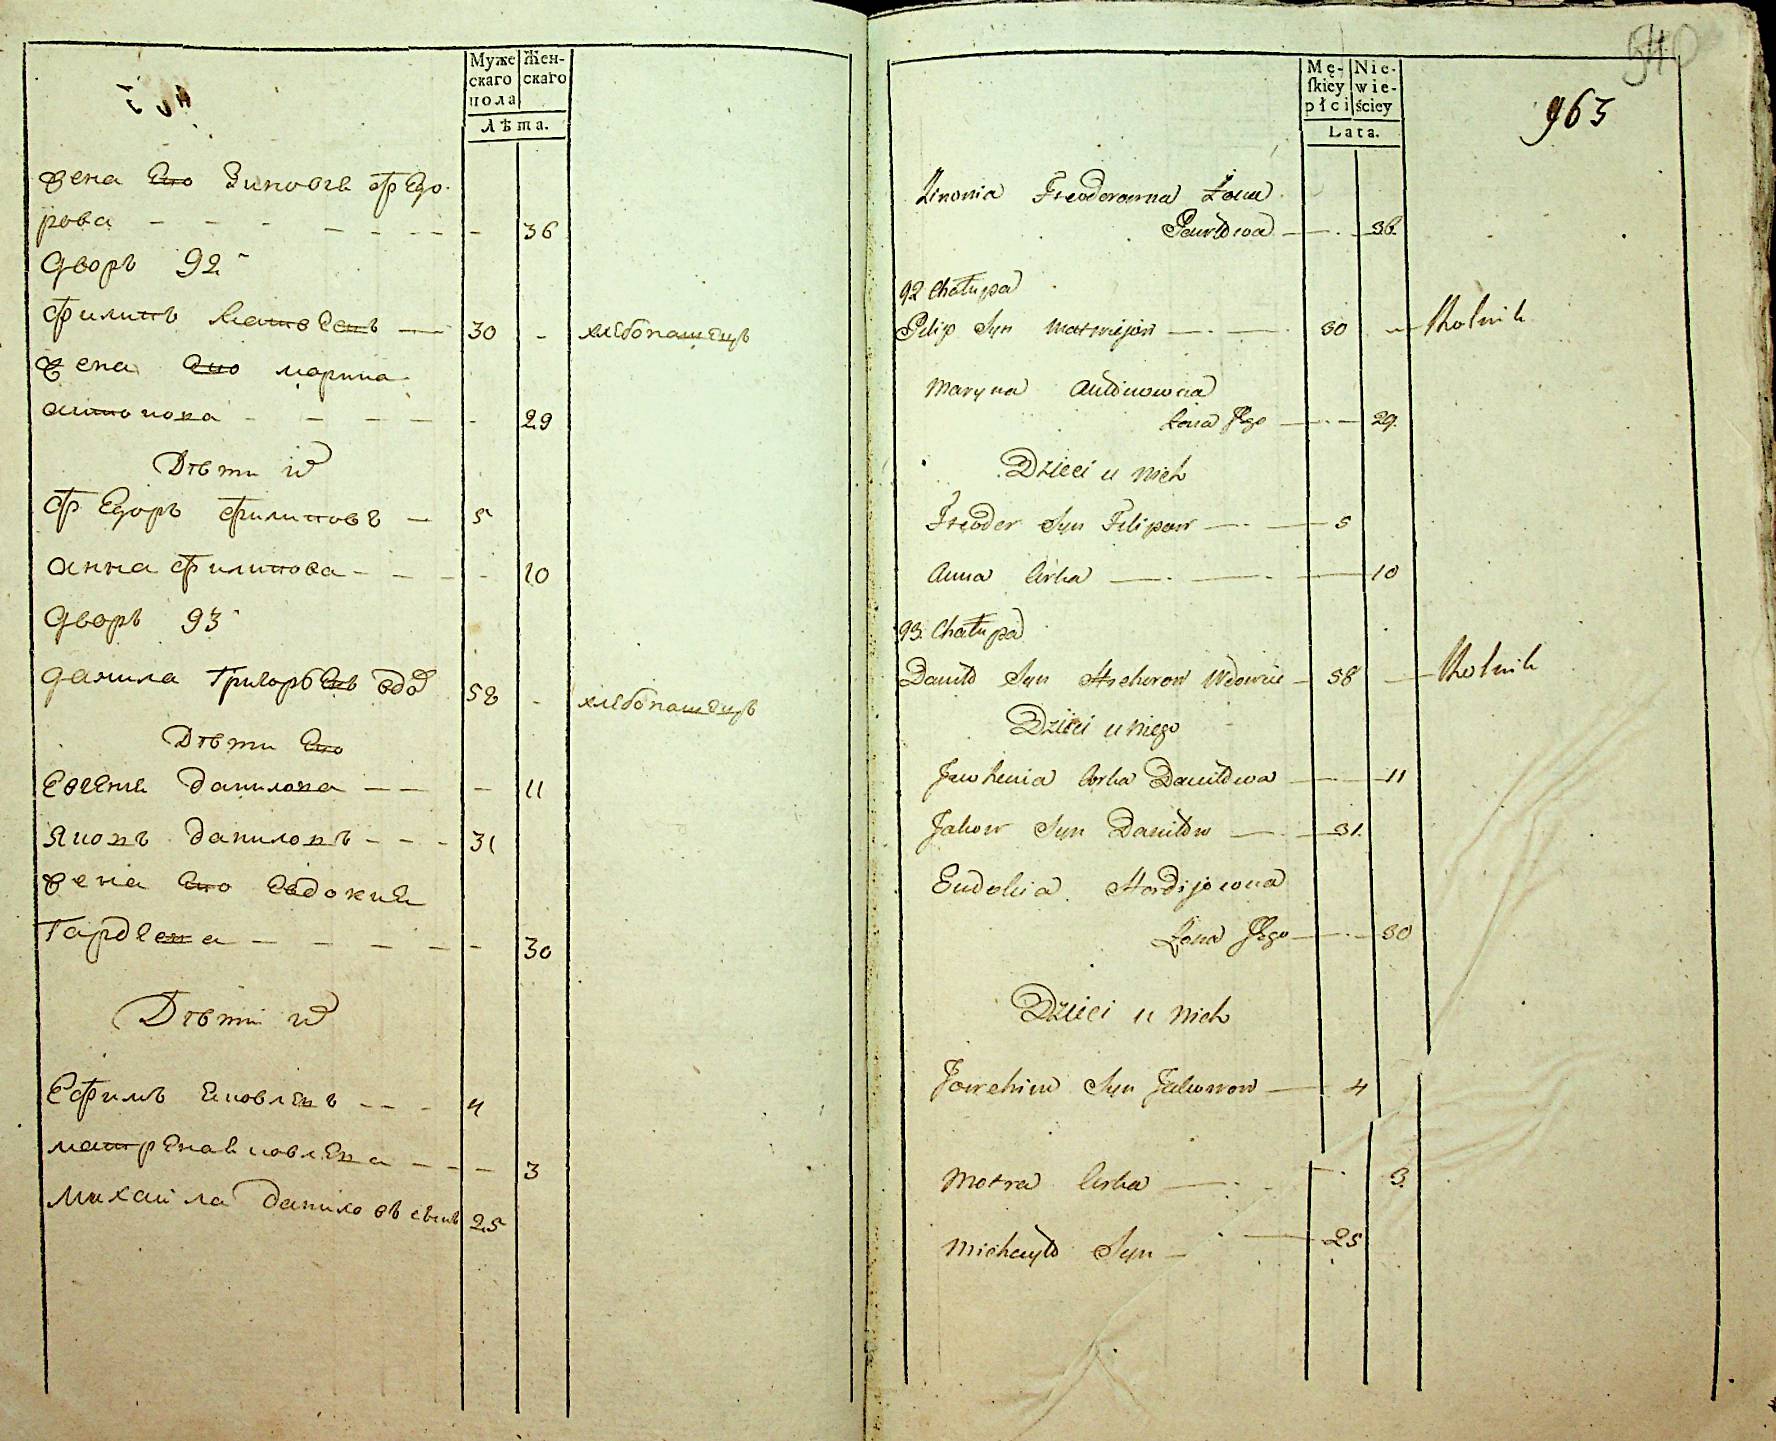 Муже
скаго
пола
Жен-
скаго
Лѣта.
жена Его Зиновія Федо-
рова - - - - - - - - 36
Дворъ 92
Филипъ Матвеевъ — 30 - хлебопашецъ
жена Его марина
антонова - - - - - 29
Дѣти их
Федоръ Филиповъ — 5
анна Филипова - - - - 10
Дворъ 93
данила Григорьевъ вдов 58 - хлебопашецъ
Дѣти Его
Евгения данилова — — - 11
Яковъ даниловъ - - - 31
жена Его Евдокия
Гардеева - - - - - 30
Дѣти их
Ефимъ яковлевъ - - - 4
матрена яковлева - - - 3
михаила даниловъ сынъ 25
540
Mę-
ſkiey
płci
Nie-
wie-
ściey
Lata.
963
Zinowia Fteodorowna Żona
Pawłowa — . — 36.
92 Chałupa
Pilip Syn Matwijow — . — 30 — Rolnik
Maryna Antonowna
Żona Jego — . — 29.
Dzieci u nich
Fteoder Syn Filipow — . — 5
Anna Corka — . — . — 10
93. Chałupa
Daniło Syn Hrehorow Wdowiec — 58 — Rolnik
Dzieci u niego
Jewhenia Corka Daniłowa — . — 11
Jakow Syn Daniłow — . — 31.
Eudokia Hordijowna
Żona Jego — . — 30
Dzieci u nich
Jowchim Syn Jakowow — 4
Motra Corka — . - — . 3.
Michayło Syn — . — 25